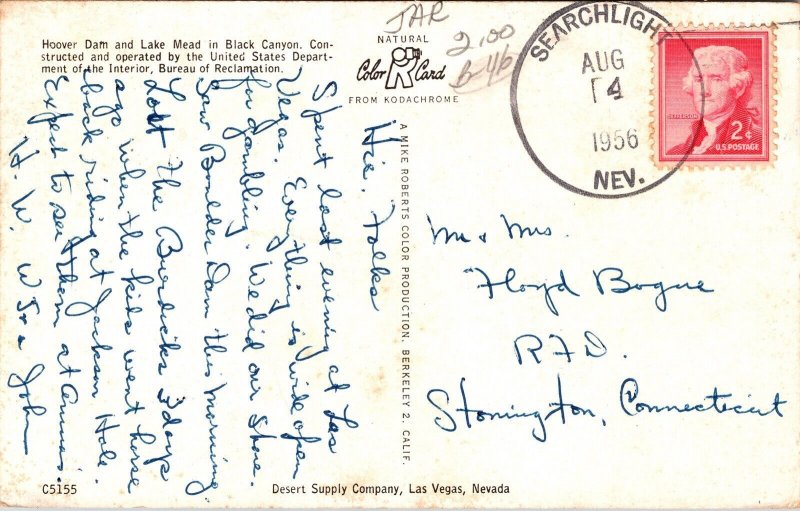 Hoover Dam and Lake Mead in Black Canyon. Con-
structed and operated by the United States Depart-
ment of the Interior, Bureau of Reclamation.
JAR
2.00
B-4/6
NATURAL
Color Card
FROM KODACHROME
SEARCHLIGHT
AUG
14
1956
NEV.
JEFFERSON
2¢
U.S. POSTAGE
Hie, Folks
Spent last evening at Las
Vegas. Everything is wide open
for gambling. We did our share.
Saw Boulder Dam this morning
Lost the Burdicks 3 days
ago when the kids went horse
back riding at Jackson Hole.
Expect to see them at
H. W. W Jr & John
A MIKE ROBERTS COLOR PRODUCTION. BERKELEY 2. CALIF.
Mr & Mrs.
Floyd Bogue
R.F.D.
Stonington, Connecticut
C5155
Desert Supply Company, Las Vegas, Nevada